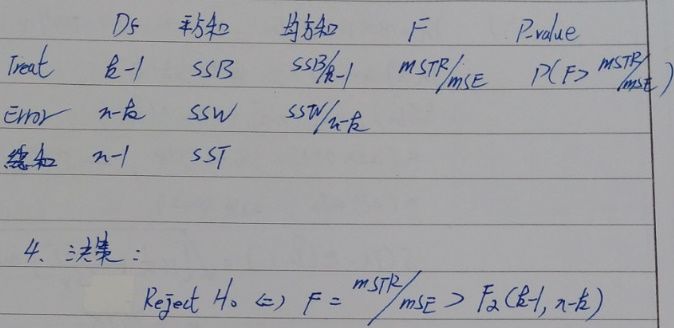 Df 平方和 均方和 F P-value
Treat k-1 SSB SSB/k-1 MSTR/MSE P(F> MSTR/MSE)
Error n-k SSW SSW/n-k
總和 n-1 SST
4、決策：
Reject H₀ ⇔ F = MSTR/MSE > Fα(k-1, n-k)